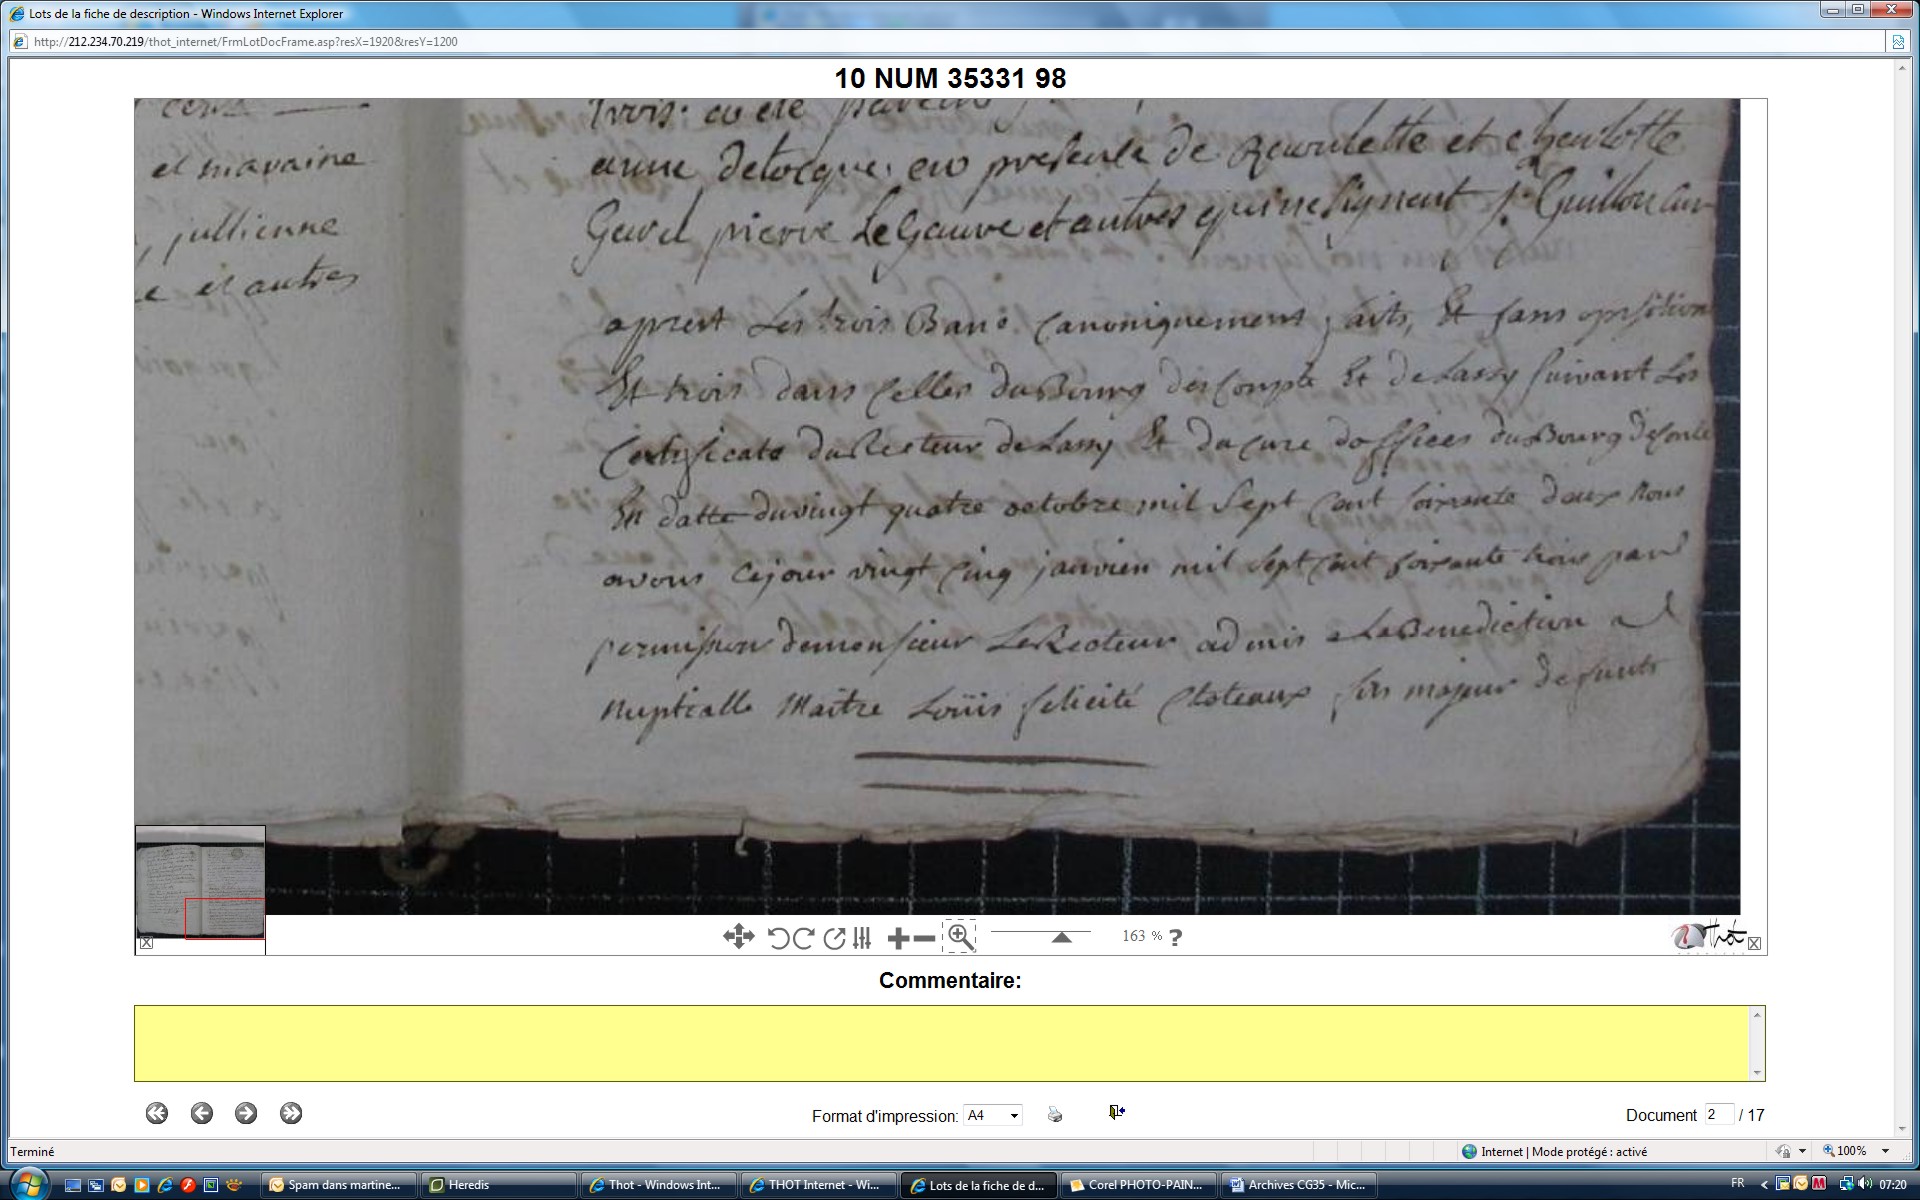 Lots de la fiche de description - Windows Internet Explorer
http://212.234.70.219/thot_internet/FrmLotDocFrame.asp?resX=1920&resY=1200
10 NUM 35331 98
et maraine
, jullienne
e et autres
trois
anne deLocque. en presence de et charlotte
Garel pierre LeGauve et autres qui ne signent Guillou
aprest Les trois Bans Canoniquement faits, Et sans oposition
Et trois dans Celles duBourg desCompte Et deLassy suivant Les
Certificats duRecteur deLassy Et du Cure doffices duBourg
En datte duvingt quatre octobre mil Sept Cent soixante deux Nous
avons Cejour vingt Cinq janvier mil Sept Cent soixante trois par
permission demonsieur LeRecteur admis a LaBenediction
nuptialle Maitre Loüis felicité Choteaux fils majeur defunts
163 % ?
Thot
Commentaire:
Format d'impression: A4
Document 2 / 17
Terminé
Internet | Mode protégé : activé
100%
Spam dans martine...
Heredis
Thot - Windows Int...
THOT Internet - Wi...
Lots de la fiche de d...
Corel PHOTO-PAIN...
Archives CG35 - Mic...
FR
07:20